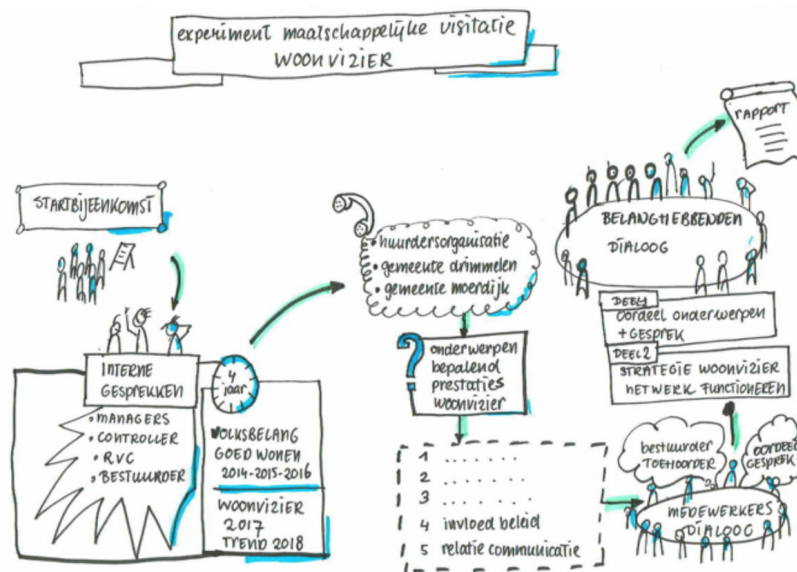 experiment maatschappelijke visitatie
WOONVIZIER
STARTBIJEENKOMST
INTERNE
GESPREKKEN
• MANAGERS
• CONTROLLER
• RVC
• BESTUURDER
4
jaar
VOLKSBELANG
GOED WONEN
2014-2015-2016
WOONVIZIER
2017
TREND 2018
• huurdersorganisatie
• gemeente drimmelen
• gemeente moerdijk
?
onderwerpen
bepalend
prestaties
woonvizier
1 .......
2 .......
3 .......
4 invloed beleid
5 relatie communicatie
bestuurder
TOEHOORDER
OORDEEL
GESPREK
MEDEWERKERS
DIALOOG
DEEL 1
oordeel onderwerpen
+ GESPREK
DEEL 2
STRATEGIE WOONVIZIER
NETWERK FUNCTIONEREN
BELANGHEBBENDEN
DIALOOG
RAPPORT